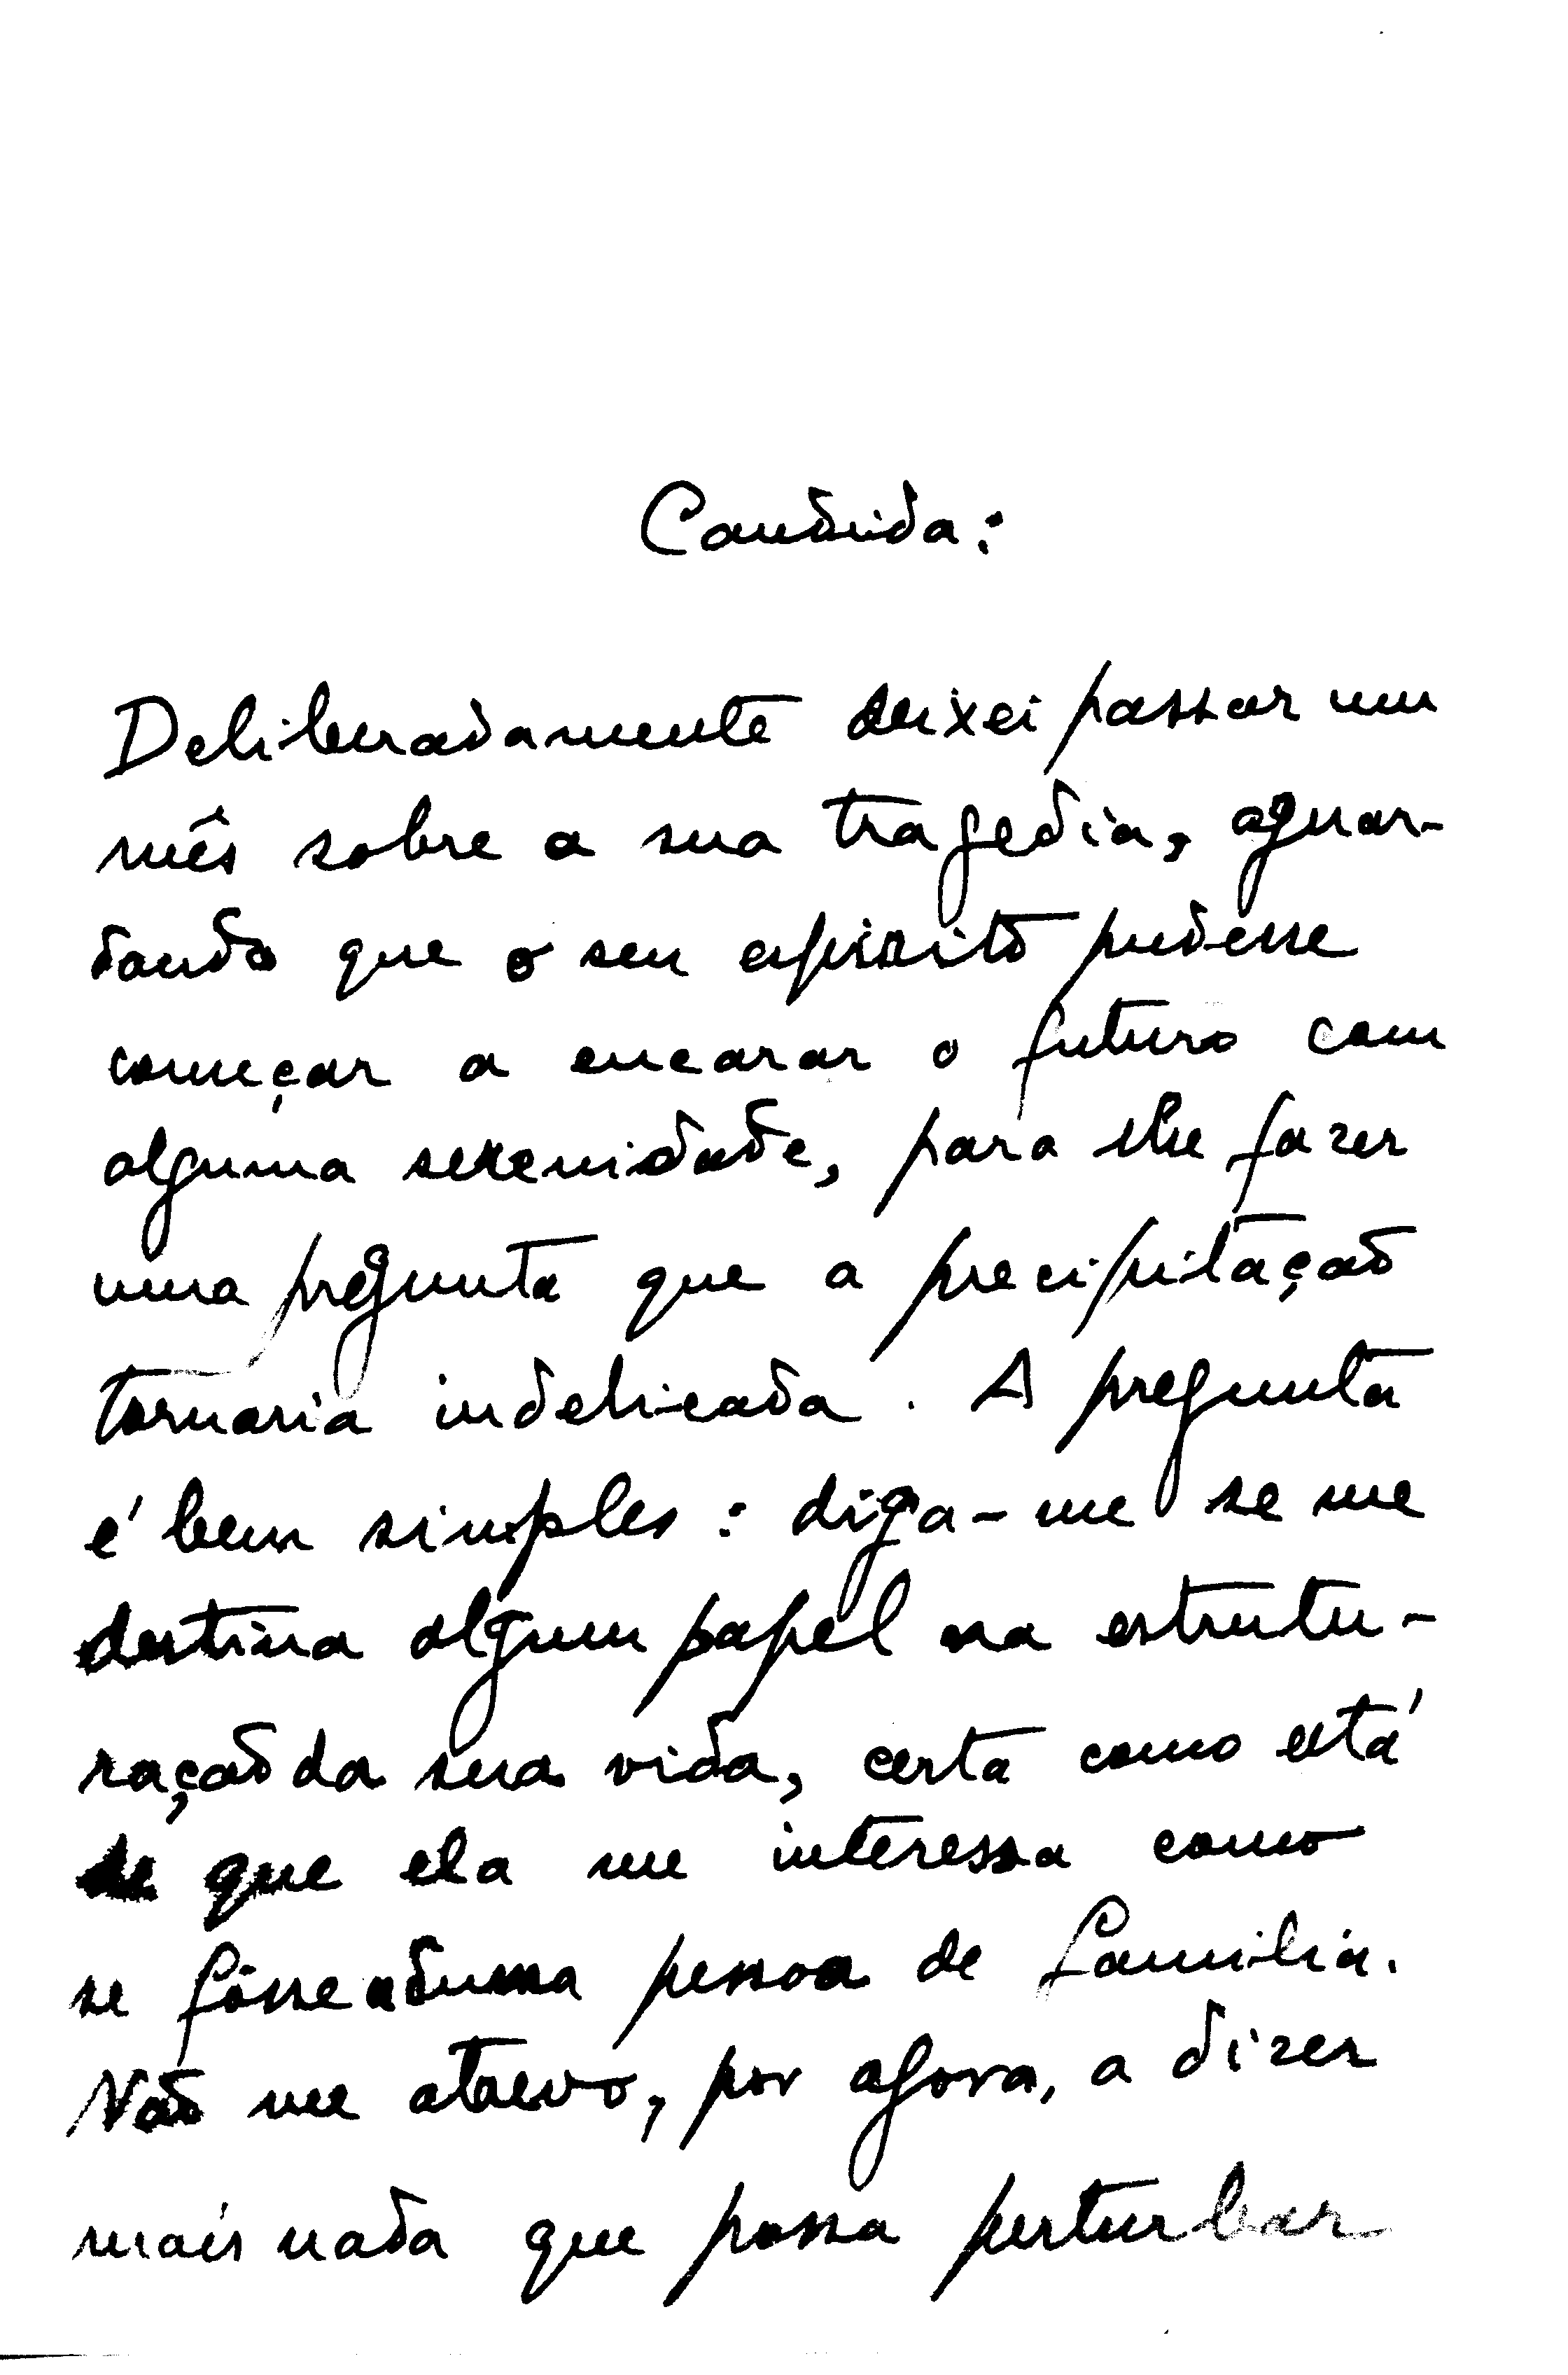 Candida:
Deliberadamente deixei passar um
mês sobre a sua tragedia, aguar-
dando que o seu espirito pudesse
começar a encarar o futuro com
alguma serenidade, para lhe fazer
uma pregunta que a precipitação
tornaria indelicada. A pregunta
é bem simples: diga-me se me
destina algum papel na estrutu-
ração da sua vida, certa como está
de que ela me interessa como
se fôsse a duma pessoa de familia.
Não me atrevo, por agora, a dizer
mais nada que possa perturbar